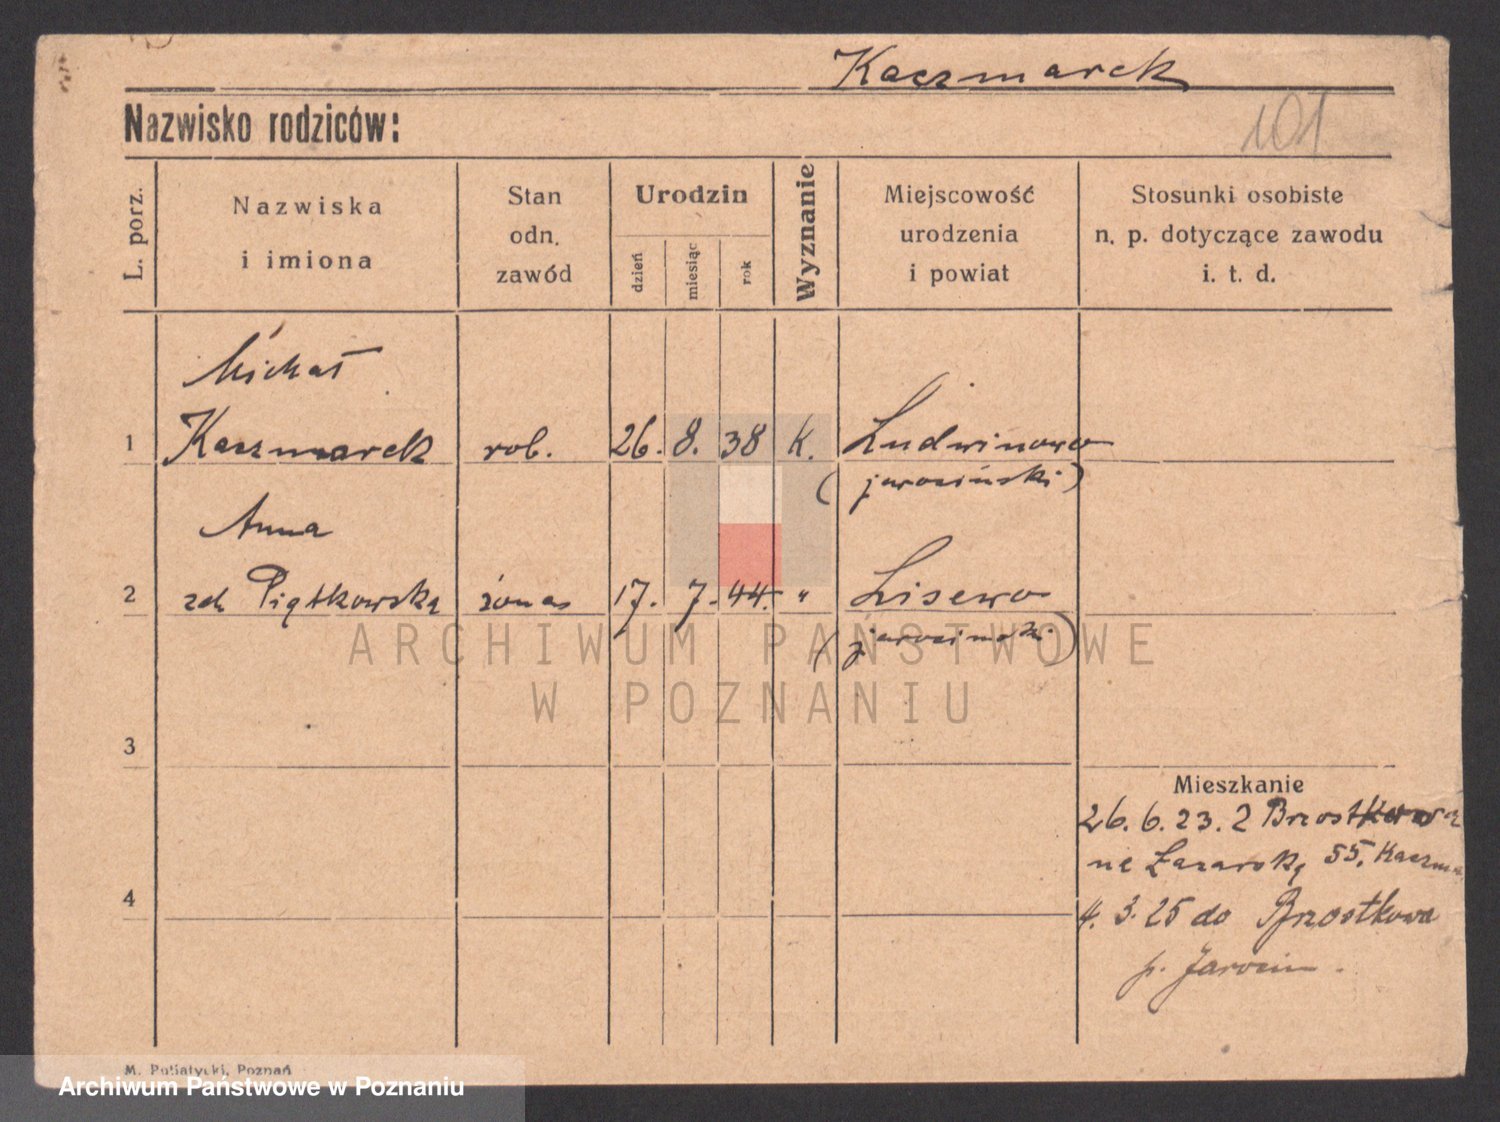 Kaczmarek
Nazwisko rodziców:
101
L. porz.
Nazwiska
i imiona
Stan
odn.
zawód
Urodzin
dzień
miesiąc
rok
Wyznanie
Miejscowość
urodzenia
i powiat
Stosunki osobiste
n. p. dotyczące zawodu
i. t. d.
Michał
1 Kaczmarek rob. 26. 8. 38 k. Ludwinowo
(jarociński)
Anna
2 zd Piątkowska żona 17. 7. 44. " Lisewo
(jarociński)
ARCHIWUM PAŃSTWOWE
W POZNANIU
3
Mieszkanie
26. 6. 23. z Brzostkowa
na Łazarską 55. Kaczm
4
4. 3. 25 do Brzostkowa
p. Jarocin.
M. Putiatycki, Poznań
Archiwum Państwowe w Poznaniu